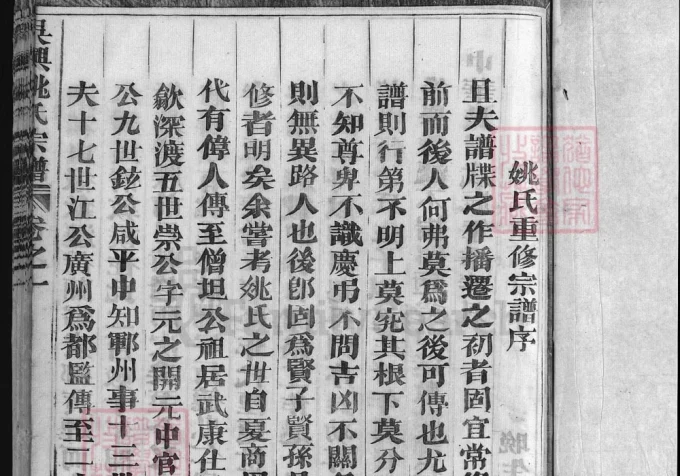 姚氏重修宗譜序
且夫譜牒之作播遷之初者固宜常
前而後人何弗莫為之後可傳也尤
譜則行第不明上莫究其根下莫分
不知尊卑不識慶弔不問吉凶不關
則無異路人也後卽固為賢子賢孫
修者明矣余嘗考姚氏之世自夏商
代有偉人傳至僧坦公祖居武康仕
歙深渡五世崇公字元之開元中官
公九世鉉公咸平中知鄆州事十三
夫十七世江公廣州為都監傳至二
吳興姚氏宗譜 卷之一